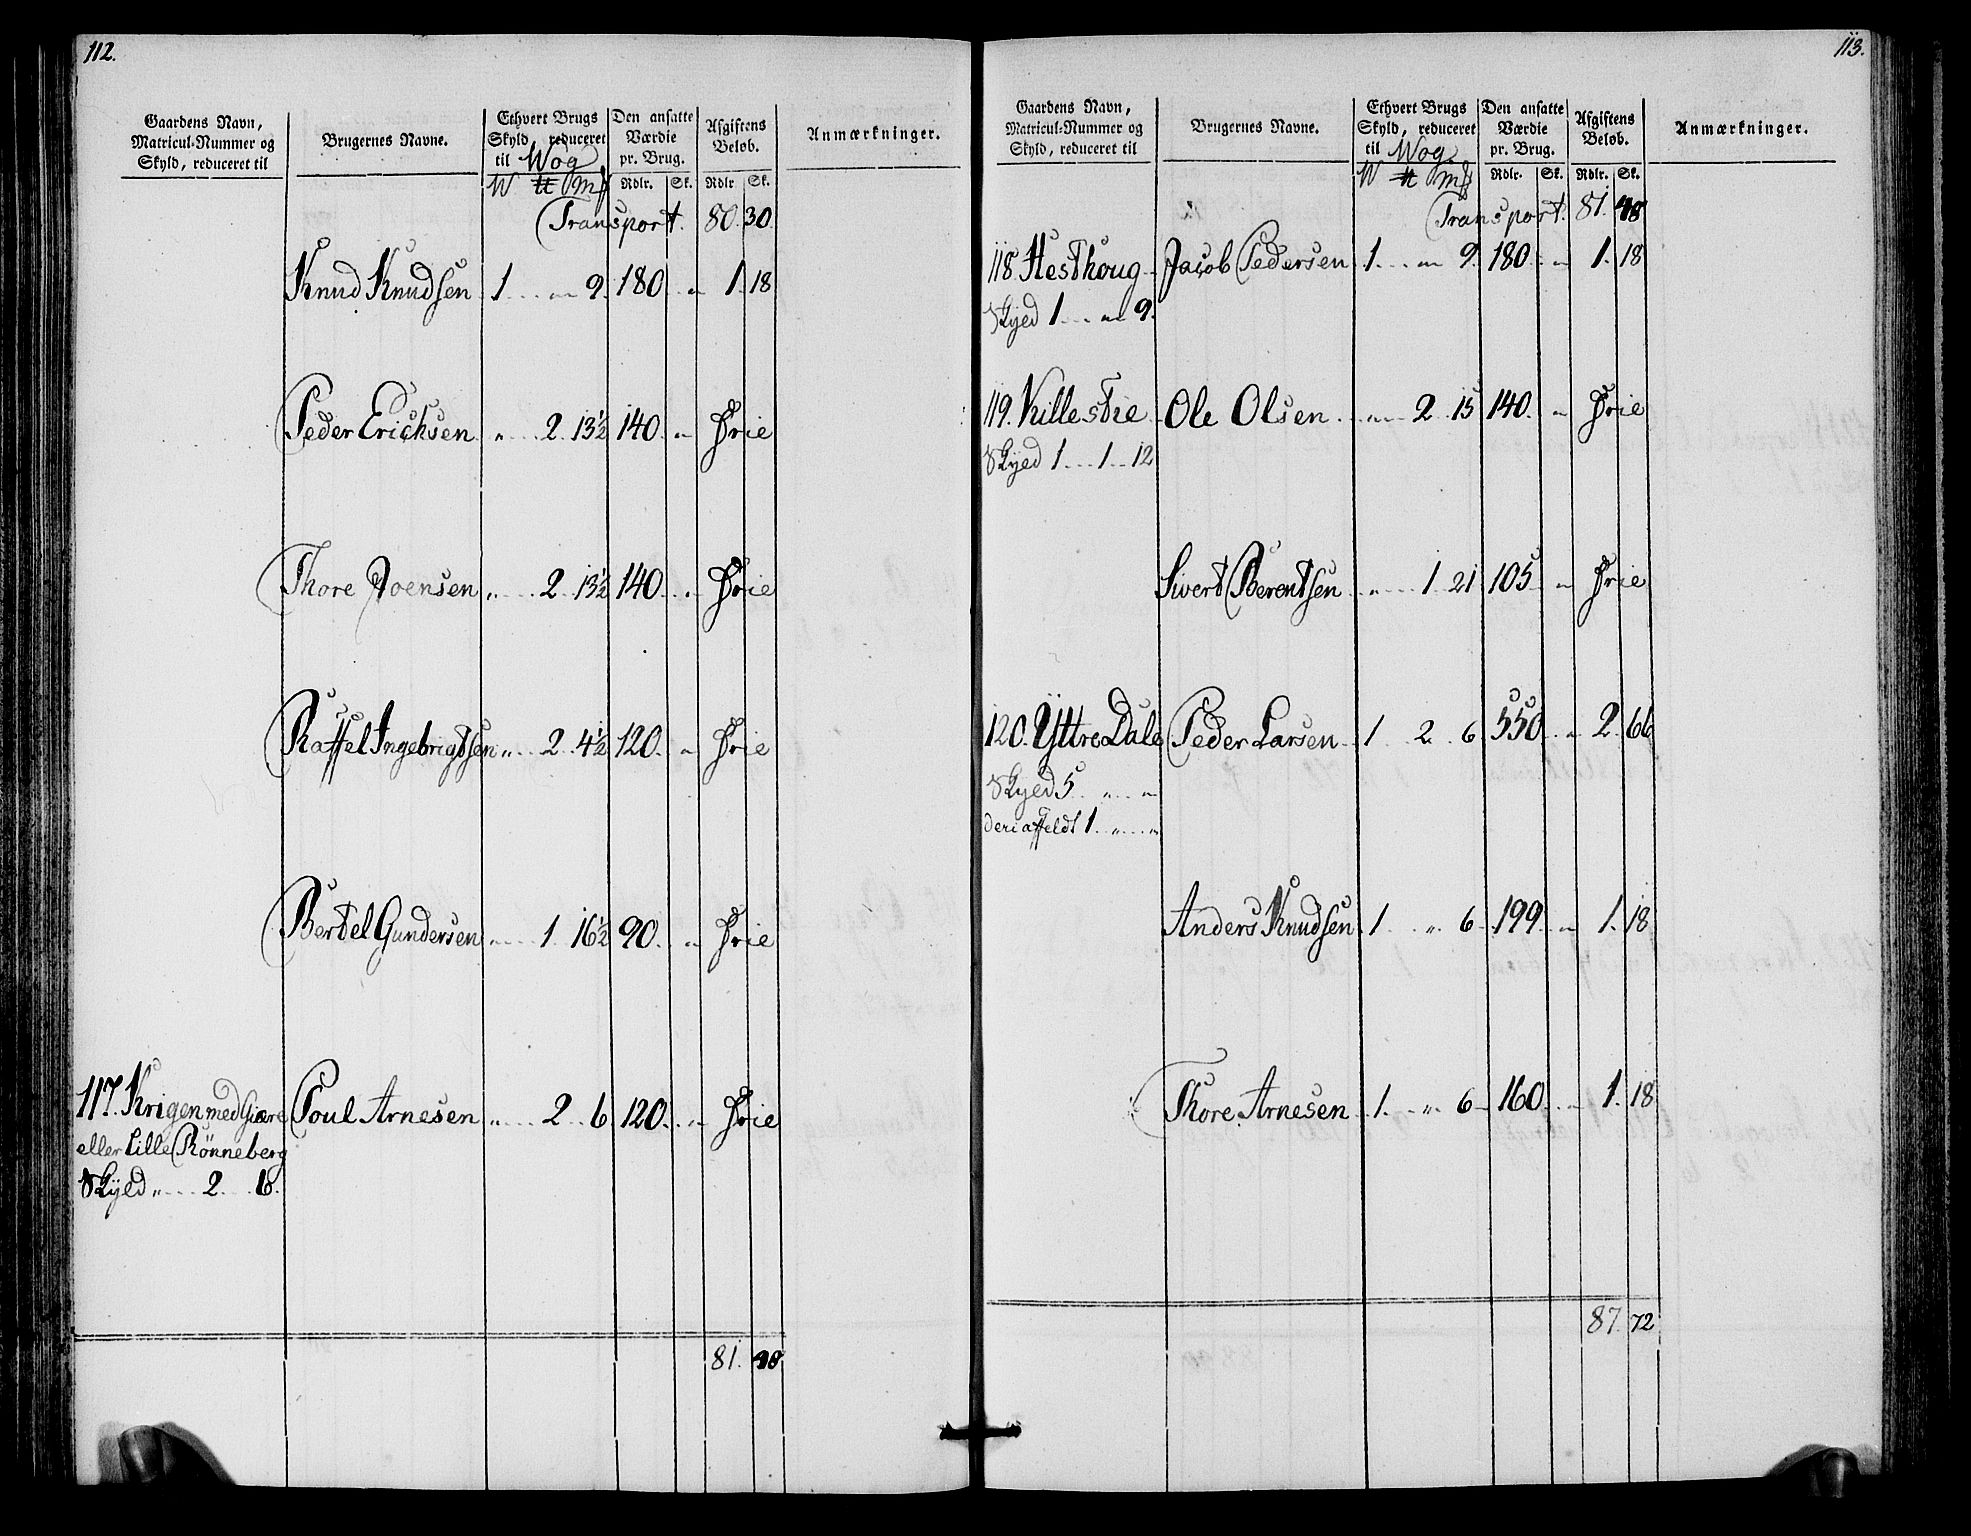 112.
Gaardens Navn, Matricul-Nummer og Skyld, reduceret til | Brugernes Navne. | Ethvert Brugs Skyld, reduceret til Wog | Den ansatte Værdie pr. Brug. | Afgiftens Beløb. | Anmærkninger.
W ℔ mȝ | Rdlr. | Sk. | Rdlr | Sk.
Transport. 80. 30.
Knud Knudsen 1 .. „ 9. 180 .. „ 1. 18
Peder Erichsen „ .. 2. 13½ 140. „ Frie
Thore Joensen „ .. 2. 13½ 140. .. Frie
Raffel Ingebrigtsen „ .. 2. 4½ 120. „ Frie
Bertel Gundersen „ .. 1. 16½ 90. „ Frie
117. Krigen med Giære Poul Arnesen „ .. 2. 6 120. „ Frie
eller Lille Rönneberg
Skyld „ .. 2. .. 6.
81. 48
113.
Gaardens Navn, Matricul-Nummer og Skyld, reduceret til | Brugernes Navne. | Ethvert Brugs Skyld, reduceret til Wog | Den ansatte Værdie pr. Brug. | Afgiftens Beløb. | Anmærkninger.
W ℔ mȝ | Rdlr. | Sk. | Rdlr. | Sk.
Transport. 81. 48
118. Hesthoug Jacob Pedersen 1. .. „ 9. 180 „ 1. 18
Skyld 1 .. „ 9.
119. Killestie Ole Olsen „ .. 2. 15 140. „ Frie
Skyld 1 .. 1 .. 12
Sivert Berentsen „ .. 1. 21 105 „ Frie
120. Yttre Dale Peder Larsen 1 .. 2 .. 6 550 „ 2. 66
Skyld 5 .. „ .. „
deriaffeldt 1. „ .. „
Anders Knudsen 1 .. „ 6. 199. „ 1. 18
Thore Arnesen 1. .. „ 6 160. „ 1. 18
87. 72